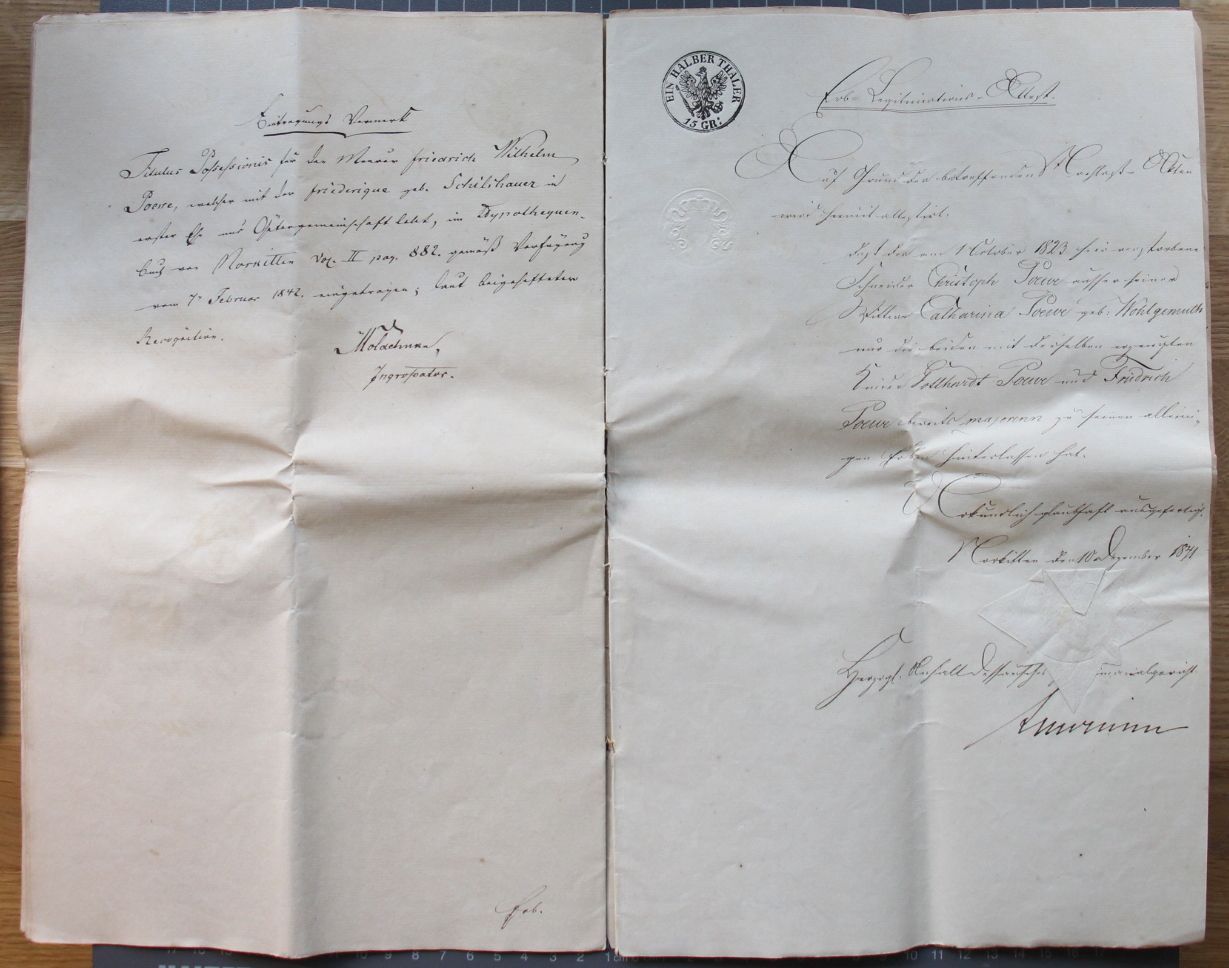 Eintragungs Vermerk
Titulus Possessionis für den Maurer Friedrich Wilhelm
Poewe, welcher mit der Friederique geb. Schülshauer in
erster Ehe und Gütergemeinschaft lebt, im Hypotheken-
buch von Norkitten Vol. II pag. 882. gemäß Verfügung
vom 7t Februar 1842. eingetragen; laut beigehefteter
Recognition.
Ingrossator.
Erb.
EIN HALBER THALER
15 GR:
Erb-Legitimations-Attest.
Auf Grund der betreffenden Nachlaß-Akten
wird hiemit attestirt:
daß der am October 1823 hier verstorbene
Schneider Christoph Poewe ausser seiner
Wittwe Catharina Poewe geb: Wohlgemuth
nur die beiden mit derselben erzeugten
Kinder Gotthardt Poewe und Friedrich
Poewe bereits majorenn zu seinen alleini-
gen Erben hinterlassen hat.
Urkundlich glaubhaft ausgefertigt.
Norkitten den 10 Dezember 1841
Herzogl. Anhalt Dessausches